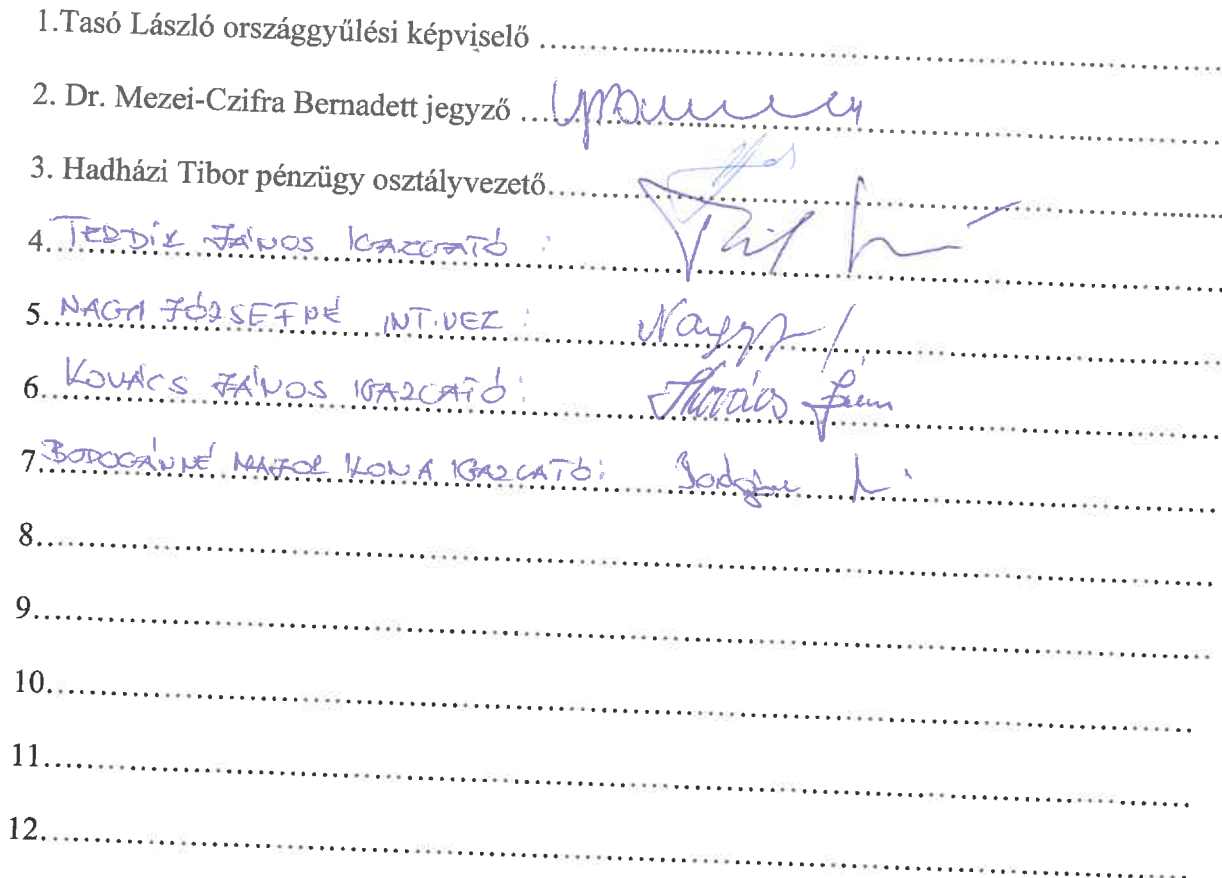 1.Tasó László országgyűlési képviselő
2. Dr. Mezei-Czifra Bernadett jegyző
3. Hadházi Tibor pénzügy osztályvezető
4. TERDIK JÁNOS IGAZGATÓ :
5. NAGY JÓZSEFNÉ INT.VEZ : Nagy
6. KOVÁCS JÁNOS IGAZGATÓ : Kovács János
7 BODOGÁNNÉ MAJOR ILONA IGAZGATÓ:
8.
9.
10.
11.
12.